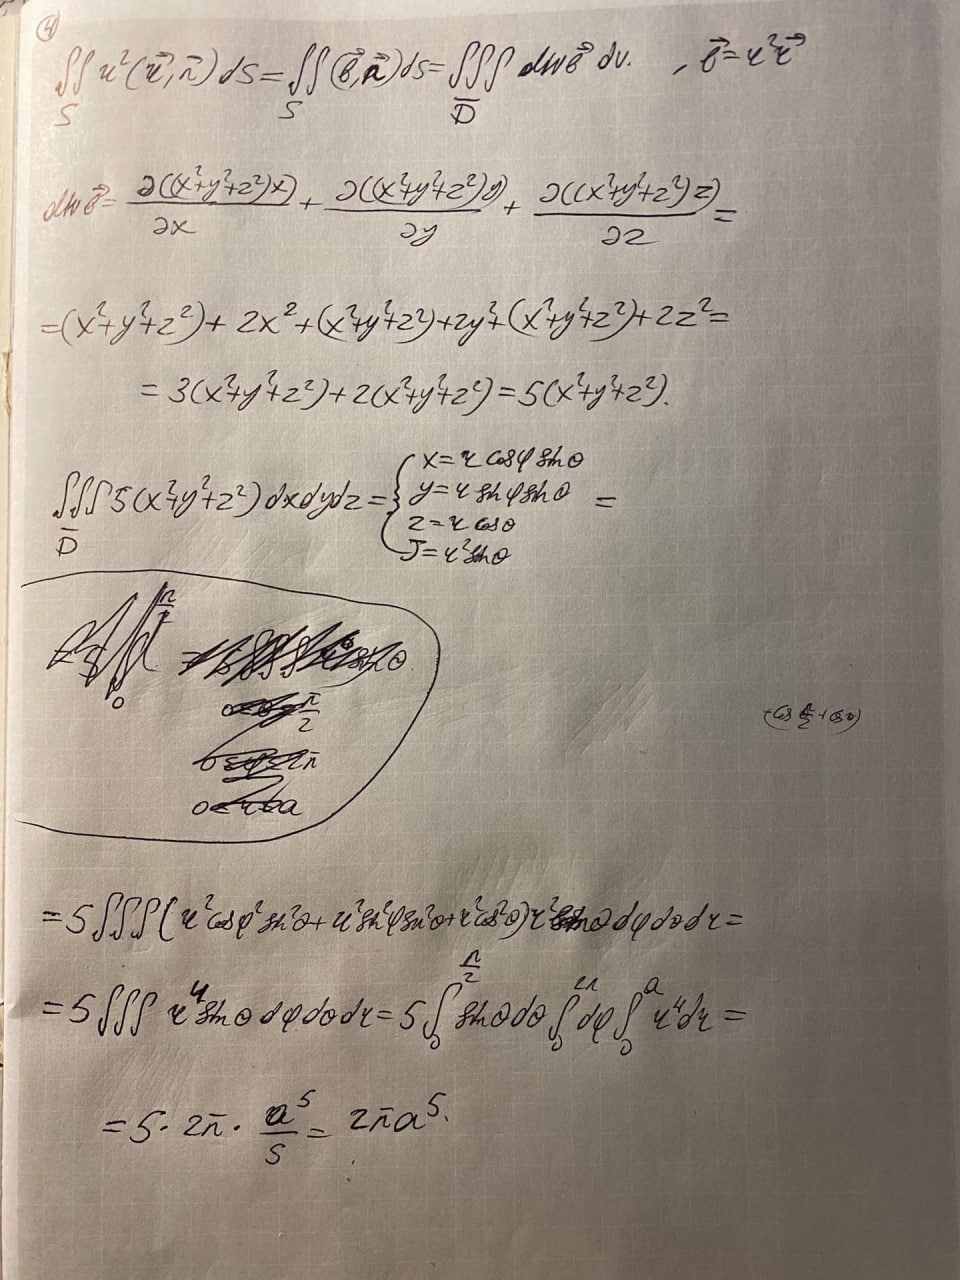 ④
∬_S r²(r⃗, n⃗) dS = ∬_S (b⃗, n⃗) dS = ∭_D̅ div b⃗ dv. , b⃗ = r²r⃗
div b⃗ = ∂((x²+y²+z²)x)/∂x + ∂((x²+y²+z²)y)/∂y + ∂((x²+y²+z²)z)/∂z =
= (x²+y²+z²) + 2x² + (x²+y²+z²) + 2y² + (x²+y²+z²) + 2z² =
= 3(x²+y²+z²) + 2(x²+y²+z²) = 5(x²+y²+z²).
∭_D̅ 5(x²+y²+z²) dxdydz = { x = r cosφ sinθ
y = r sinφ sinθ =
z = r cosθ
J = r² sinθ
(-cos π/2 + cos 0)
= 5 ∭ (r² cos φ² sin²θ + r² sin²φ sin²θ + r² cos²θ) r² sinθ dφ dθ dr =
= 5 ∭ r⁴ sinθ dφ dθ dr = 5 ∫₀^{π/2} sinθ dθ ∫₀^{2π} dφ ∫₀^a r⁴ dr =
= 5 · 2π · a⁵/5 = 2πa⁵.